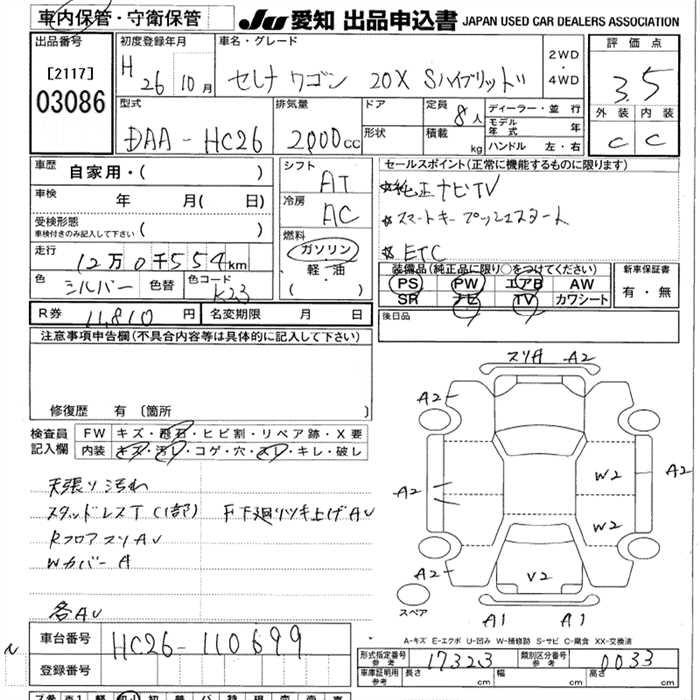 車内保管・守衛保管
JU 愛知 出品申込書 JAPAN USED CAR DEALERS ASSOCIATION
出品番号
[2117]
03086
初度登録年月
H 26 10月
車名・グレード
セレナ ワゴン 20X Sハイブリッド
2WD
・
4WD
評価点
3.5
外装 内装
C C
型式
DAA-HC26
排気量
2000cc
ドア
形状
定員 8人
積載 kg
ディーラー・並行
モデル年式 年
ハンドル 左・右
車歴 自家用・( )
車検 年 月( 日)
受検形態
車検付きのみ記入して下さい ( )
走行 12万0千554km
色 シルバー 色替 色コード K23
シフト
AT
冷房
AC
燃料
ガソリン
軽・油
( )
セールスポイント(正常に機能するものに限ります)
☆純正ナビTV
☆スマートキー プッシュスタート
☆ETC
装備品(純正品に限り○をつけてください)
PS PW エアB AW
SR ナビ TV カワシート
新車保証書
有・無
R券 11,810円 名変期限 月 日
後日品
注意事項申告欄(不具合内容等は具体的に記入して下さい)
修復歴 有〔箇所 〕
検査員記入欄
FW キズ・飛石・ヒビ割・リペア跡・X要
内装 キズ・汚レ・コゲ・穴・スレ・キレ・破レ
天張り汚れ
スタッドレスT(1部) F下廻リツキ上げAU
RフロアスリAU
WカバーA
各AU
スリA A2
A2
A2
A2
A2
W2
W2
A2
A2
V2
A1 A1
スペア
A-キズ E-エクボ U-凹み W-補修跡 S-サビ C-腐食 XX-交換済
車台番号 HC26-110699
登録番号
形式指定番号
参考 17323
類別区分番号
参考 0033
車庫証明用
参考 長さ cm 幅 cm 高さ cm